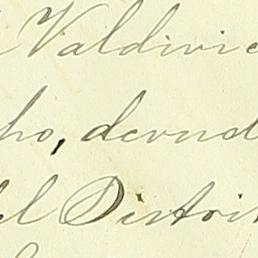 Valdivie
ho, dcvnd
del Distrit